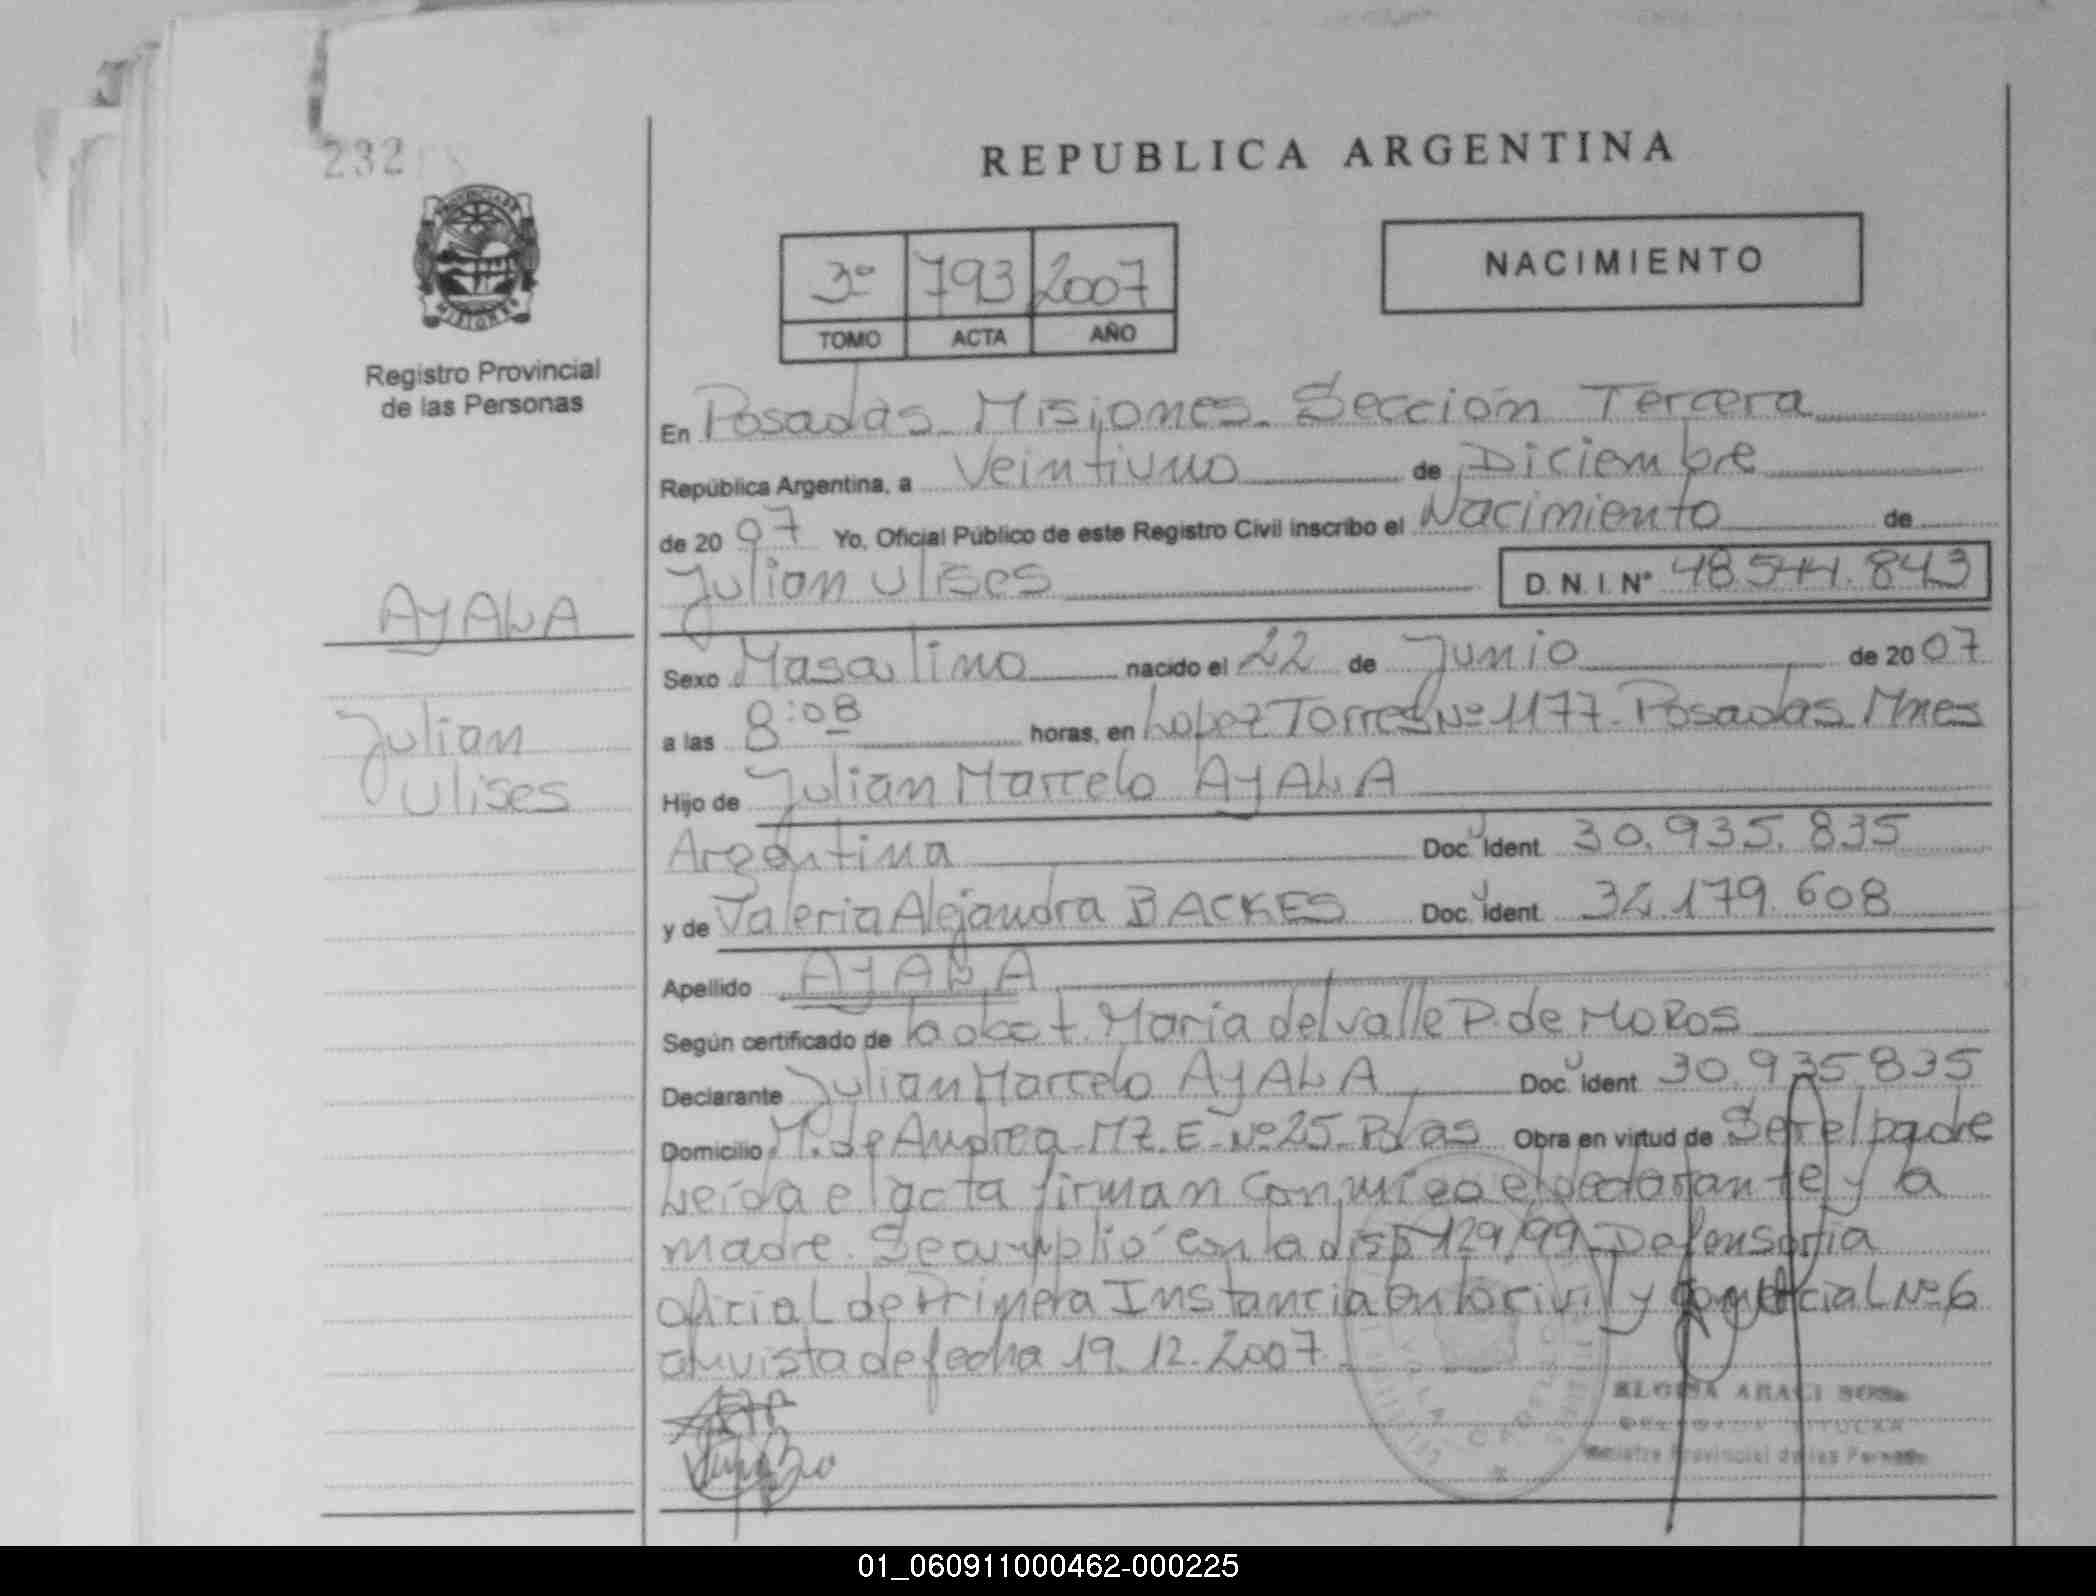 232
REPUBLICA ARGENTINA
PROVINCIA DE
MISIONES
Registro Provincial
de las Personas
3º 793 2007
TOMO ACTA AÑO
NACIMIENTO
En Posadas Misiones Sección Tercera
República Argentina, a Veintiuno de Diciembre
de 2007 Yo, Oficial Público de este Registro Civil inscribo el Nacimiento de
Julian Ulises D.N.I. Nº 48.544.843
AYALA
Sexo Masculino nacido el 22 de Junio de 2007
Julian
Ulises
a las 8:08 horas, en Lopez Torres Nº 1177 Posadas Mnes
Hijo de Julian Marcelo AYALA
Argentina Doc. Ident. 30.935.835
y de Valeria Alejandra BACKES Doc. Ident. 34.179.608
Apellido AYALA
Según certificado de la obst. Maria del valle P. de MOROS
Declarante Julian Marcelo AYALA Doc. Ident. 30.935.835
Domicilio M. de Andrea MZ. E Nº 25 Pdas Obra en virtud de Ser el padre
Leída el acta firman conmigo el declarante y la
madre. Se cumplió con la disp 129/99 Defensoria
oficial de Primera Instancia en lo civil y comercial Nº 6
en vista de fecha 19.12.2007
ELOISA ARACI SOSA
Registro Provincial de las Personas
01_060911000462-000225